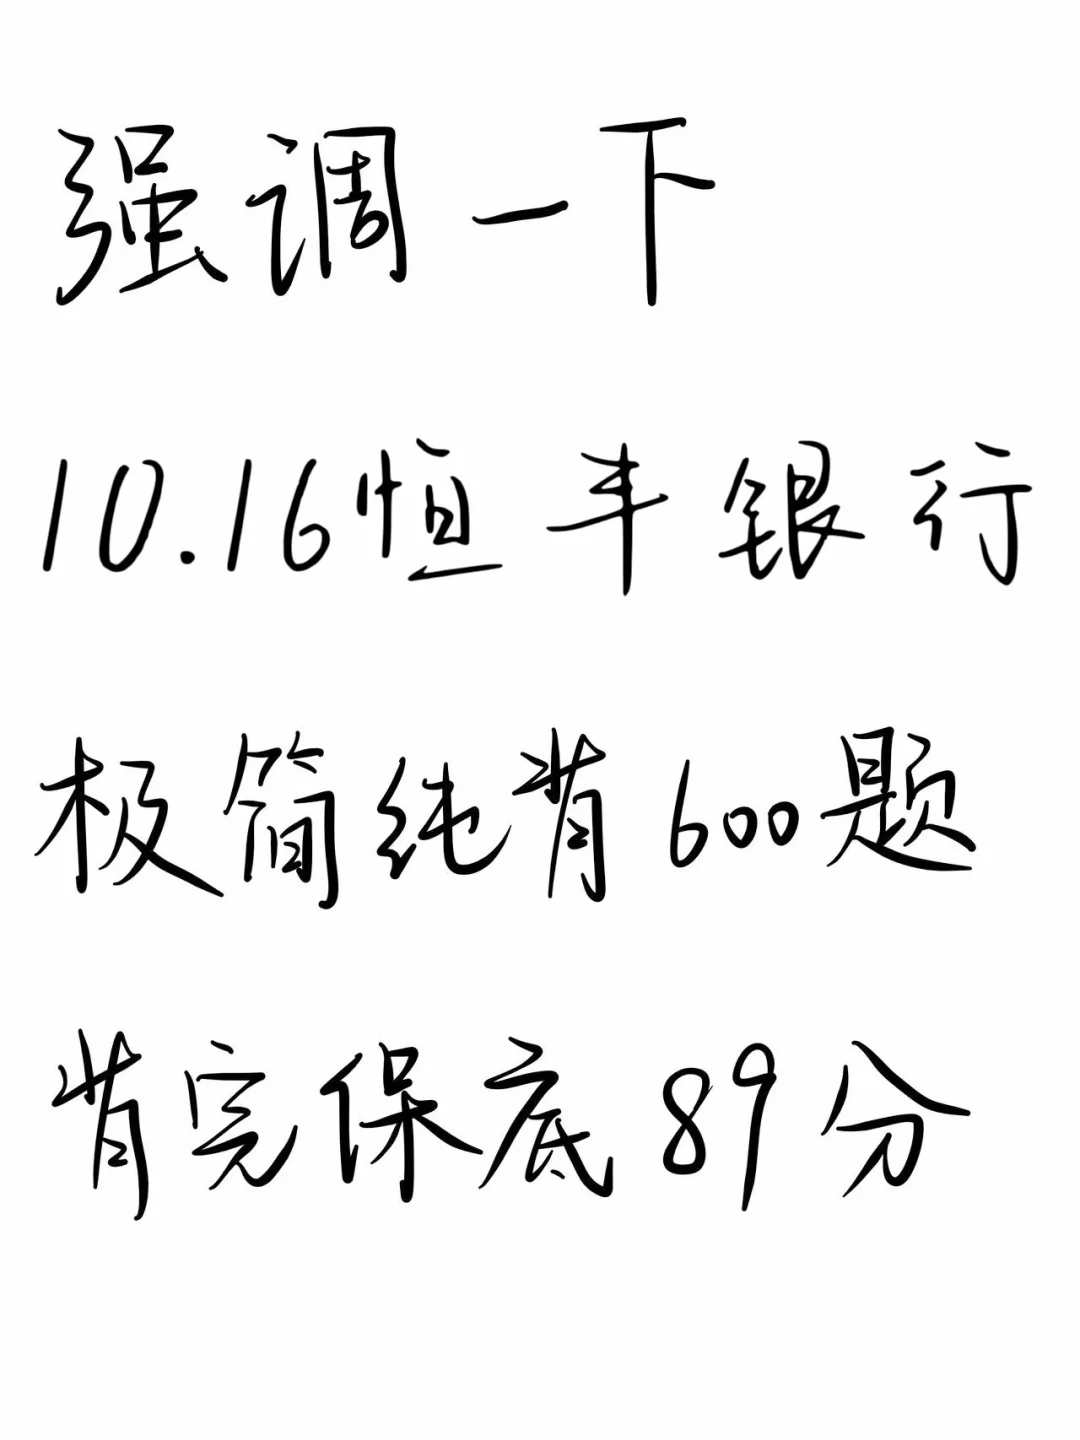 强调一下
10.16恒丰银行
极简纯背600题
背完保底89分